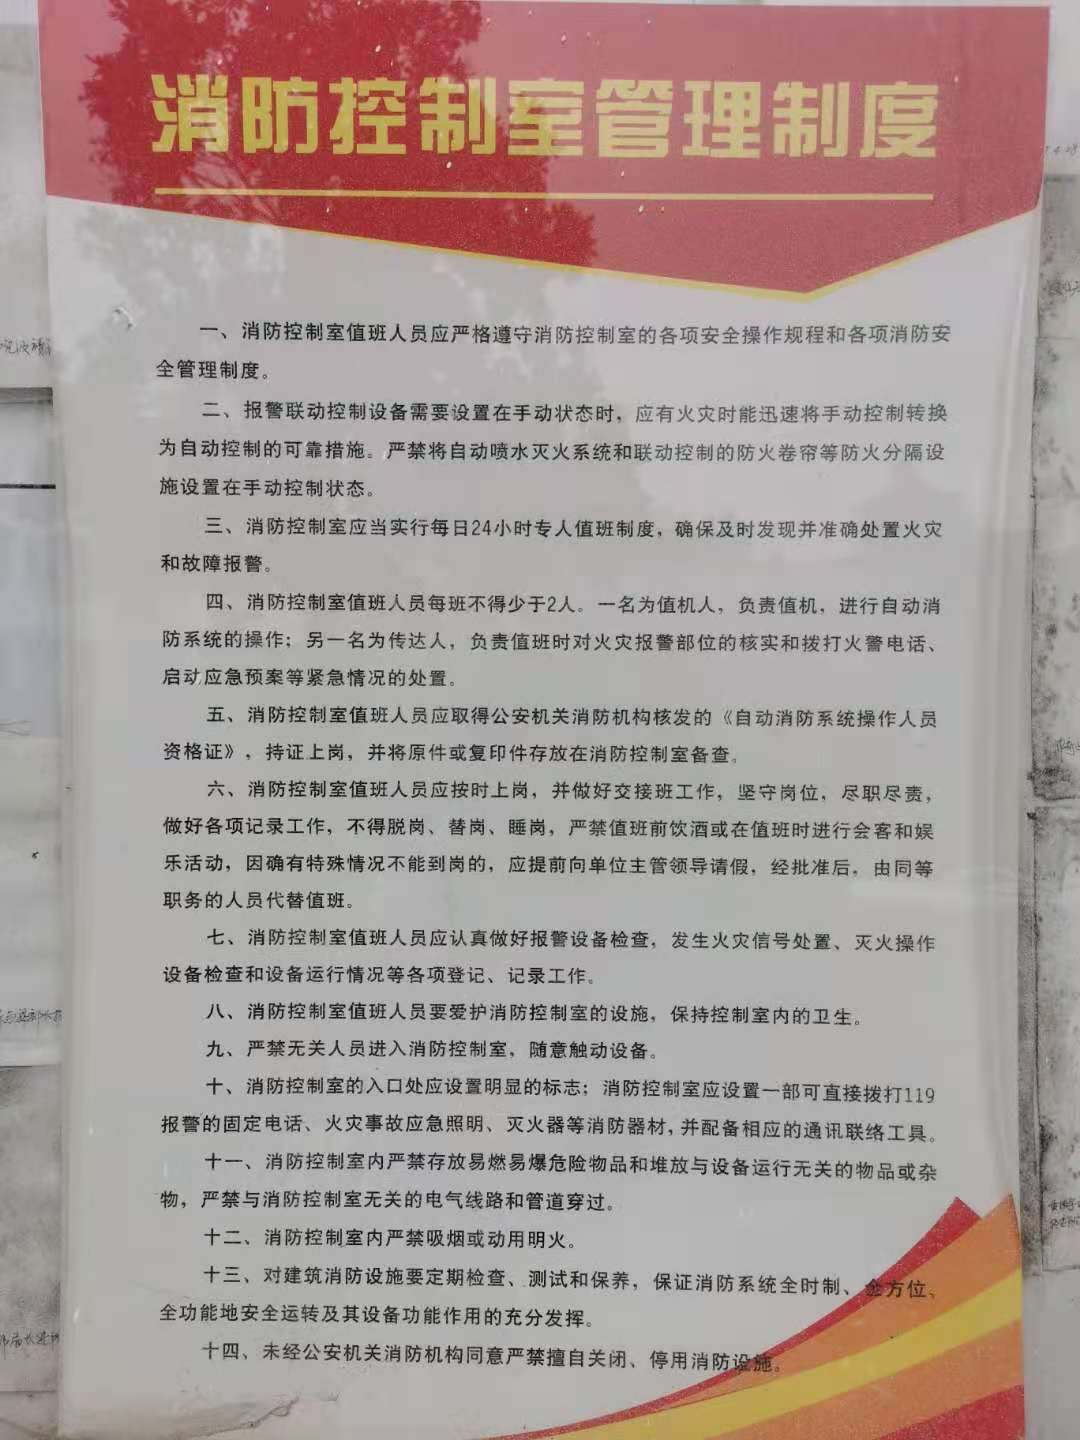 消防控制室管理制度
一、消防控制室值班人员应严格遵守消防控制室的各项安全操作规程和各项消防安
全管理制度。
二、报警联动控制设备需要设置在手动状态时，应有火灾时能迅速将手动控制转换
为自动控制的可靠措施。严禁将自动喷水灭火系统和联动控制的防火卷帘等防火分隔设
施设置在手动控制状态。
三、消防控制室应当实行每日24小时专人值班制度，确保及时发现并准确处置火灾
和故障报警。
四、消防控制室值班人员每班不得少于2人。一名为值机人，负责值机，进行自动消
防系统的操作；另一名为传达人，负责值班时对火灾报警部位的核实和拨打火警电话、
启动应急预案等紧急情况的处置。
五、消防控制室值班人员应取得公安机关消防机构核发的《自动消防系统操作人员
资格证》，持证上岗，并将原件或复印件存放在消防控制室备查。
六、消防控制室值班人员应按时上岗，并做好交接班工作，坚守岗位，尽职尽责，
做好各项记录工作，不得脱岗、替岗、睡岗，严禁值班前饮酒或在值班时进行会客和娱
乐活动，因确有特殊情况不能到岗的，应提前向单位主管领导请假，经批准后，由同等
职务的人员代替值班。
七、消防控制室值班人员应认真做好报警设备检查，发生火灾信号处置、灭火操作
设备检查和设备运行情况等各项登记、记录工作。
八、消防控制室值班人员要爱护消防控制室的设施，保持控制室内的卫生。
九、严禁无关人员进入消防控制室，随意触动设备。
十、消防控制室的入口处应设置明显的标志；消防控制室应设置一部可直接拨打119
报警的固定电话、火灾事故应急照明、灭火器等消防器材，并配备相应的通讯联络工具。
十一、消防控制室内严禁存放易燃易爆危险物品和堆放与设备运行无关的物品或杂
物，严禁与消防控制室无关的电气线路和管道穿过。
十二、消防控制室内严禁吸烟或动用明火。
十三、对建筑消防设施要定期检查、测试和保养，保证消防系统全时制、全方位、
全功能地安全运转及其设备功能作用的充分发挥。
十四、未经公安机关消防机构同意严禁擅自关闭、停用消防设施。